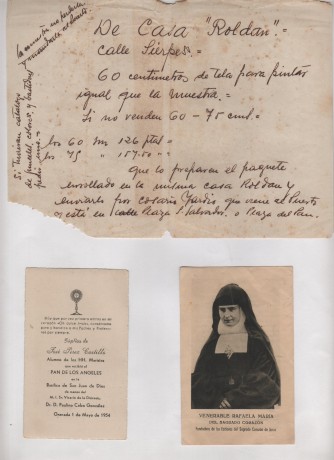 De Casa "Roldán".
calle Sierpes =
60 centímetros de tela para pintar
igual que la muestra. =
Si no venden 60 - 75 cmtl. =
los 60 cm 126 ptas =
por 75 " 157.50 =
que lo preparen el paquete
enrollado en la misma casa Roldan y
enviarlo por cosario que viene al Puerto
y está en calle Plaza S. Salvador, o Plaza del Pan.
Si tuvieran catálogo
de pincel, colores, y
pedir uno.
José Pérez Castillo
Alumno de los HH. Maristas
que recibió el
PAN DE LOS ANGELES
en la
Basílica de San Juan de Dios
de manos del
M. I. Sr. Vicario de la Diócesis,
Dr. D. Paulino Cobo González
Granada 1 de Mayo de 1954
VENERABLE RAFAELA MARIA
DEL SAGRADO CORAZÓN
Fundadora de las Esclavas del Sagrado Corazón de Jesús